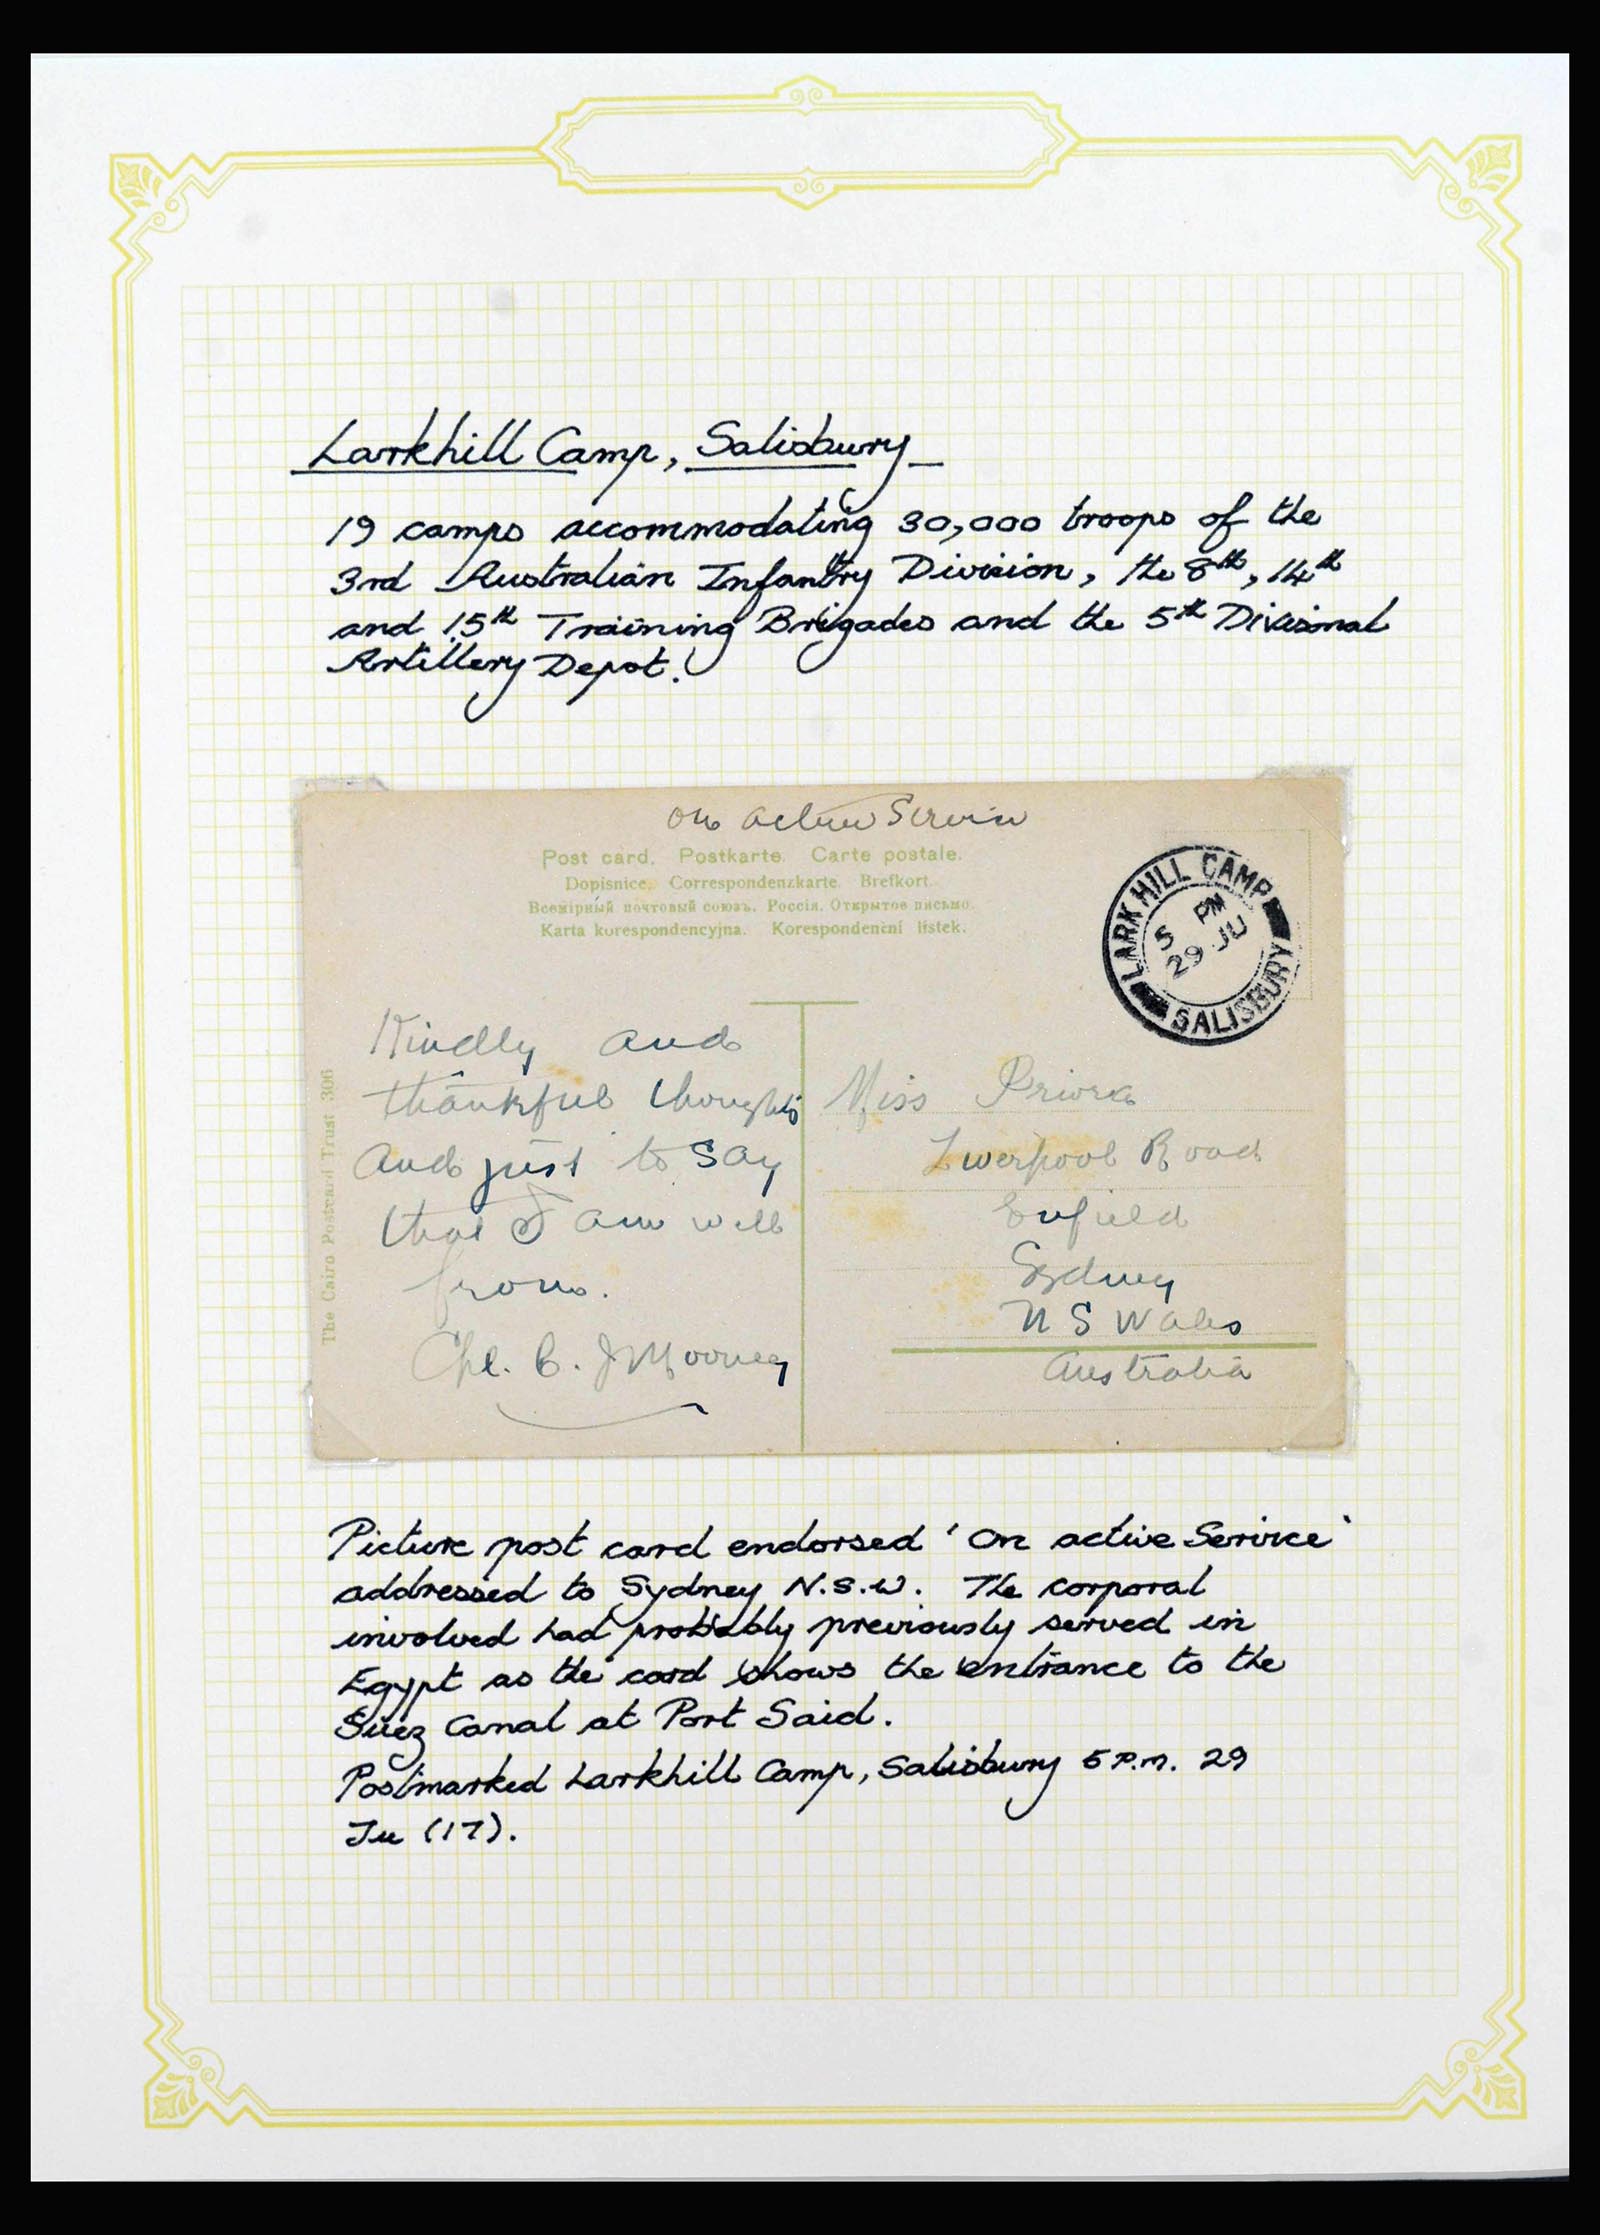 Larkhill Camp, Salisbury
19 camps accommodating 30,000 troops of the
3rd Australian Infantry Division, the 8th, 14th
and 15th Training Brigades and the 5th Divisional
Artillery Depot.
On Active Service
Post card. Postkarte. Carte postale.
Dopisnice. Correspondenzkarte. Brefkort.
Всемірный почтовый союзъ. Россія. Открытое письмо.
Karta korespondencyjna. Korespondenční lístek.
LARK HILL CAMP
5 PM
29 JU
SALISBURY
The Cairo Postcard Trust 306
Kindly and
thankful thoughts
and just to say
that I am well
from.
Cpl. C. J Mooney
Miss
Liverpool Road
Enfield
Sydney
N S Wales
Australia
Picture post card endorsed 'On active Service'
addressed to Sydney N.S.W. The corporal
involved had probably previously served in
Egypt as the card shows the entrance to the
Suez Canal at Port Said.
Postmarked Larkhill Camp, Salisbury 5 P.M. 29
Ju (17).